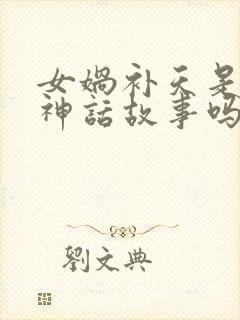 女娲补天是
神話故事吗
劉文典